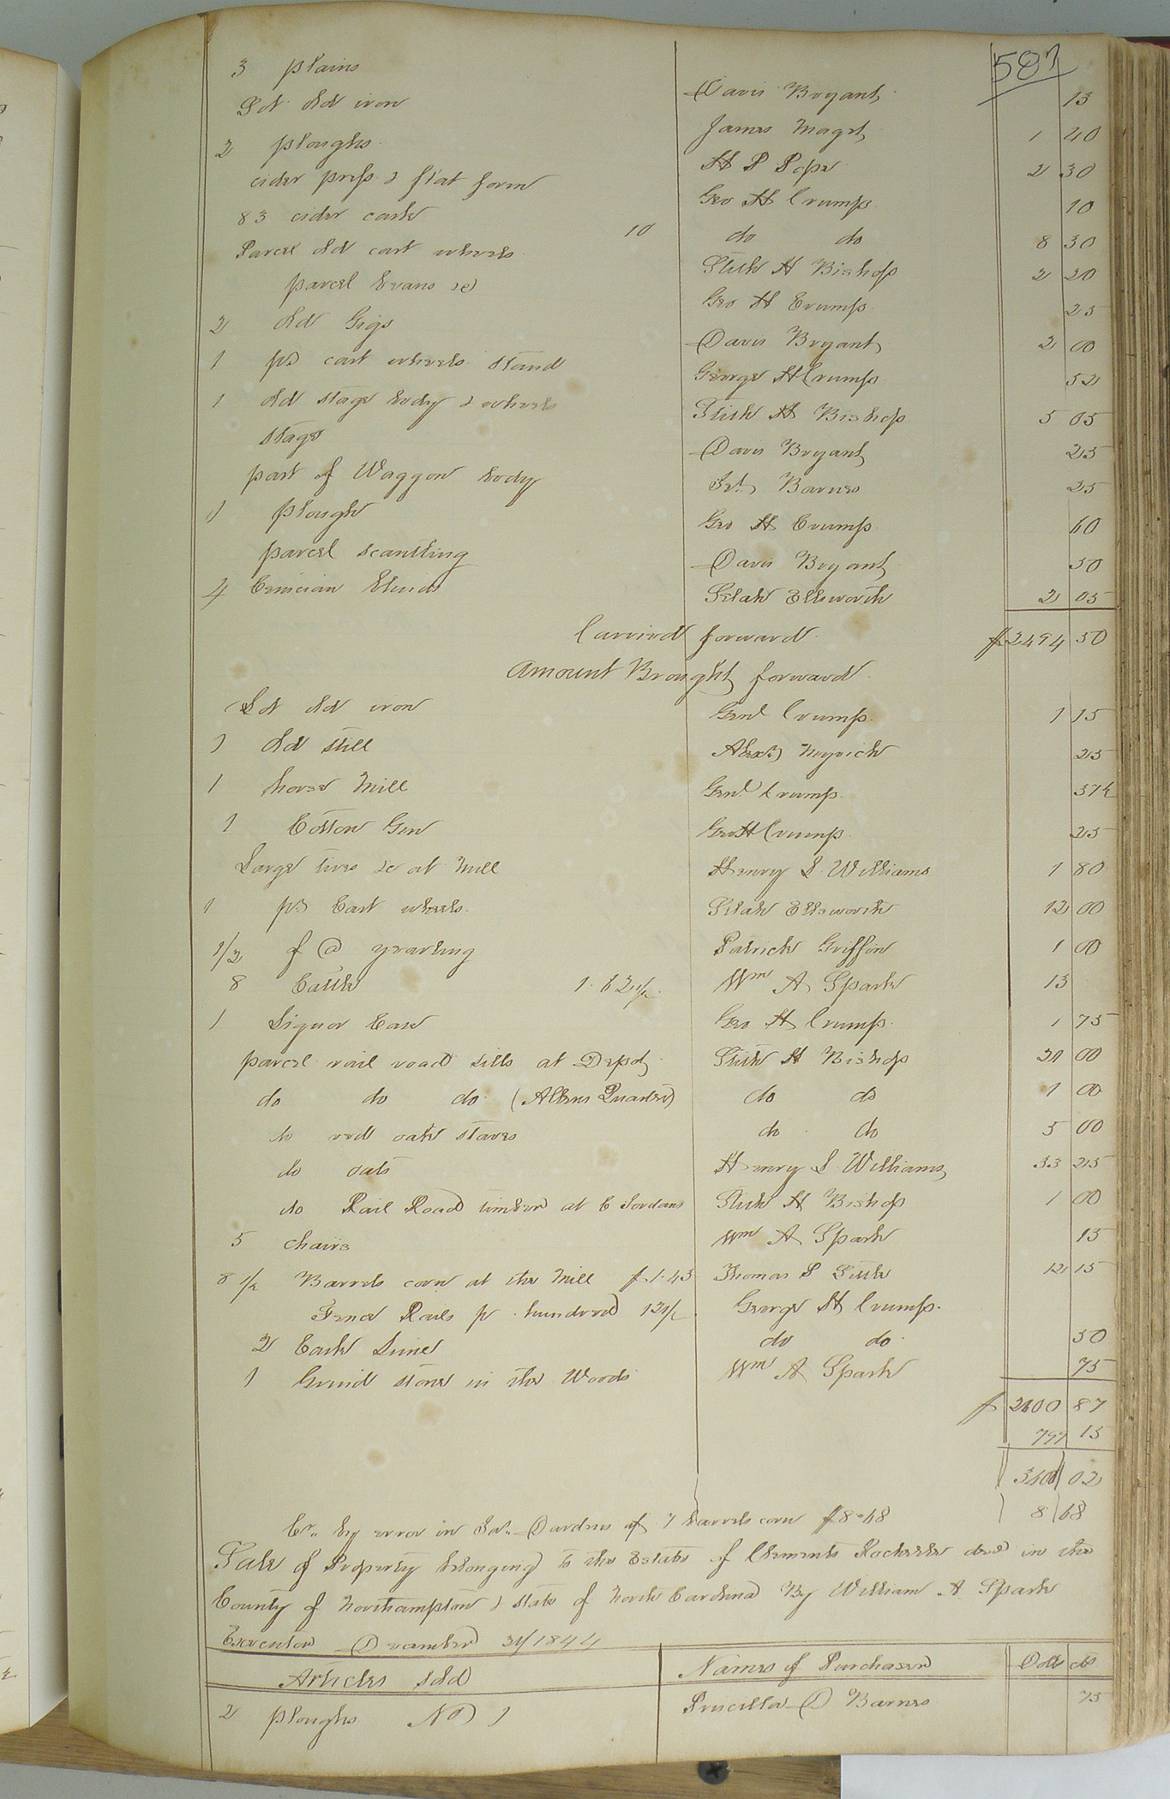 587
3 plains Davis Bryant 15
Lot old iron James Maget 1 40
2 ploughs H P Pope 2 30
cider press & flat form Geo H Crump 10
83 cider cask 10 do do 8 30
Parcel old cart wheels Stith H Bishop 2 20
parcel &c Geo H Crump 25
2 old Gigs Davis Bryant 2 00
1 pr cart wheels stand George H Crump 52
1 old stage body & wheels Stith H Bishop 5 05
stage Davis Bryant 25
part of Waggon body Barnes 25
1 plough Geo H Crump 60
parcel scantling Davis Bryant 50
4 Venician blinds Ellsworth 2 05
Carried forward $2494 50
Amount Brought forward
Lot old iron Genl Crump 1 15
1 old still Alexr Myrick 25
1 horse Mill Genl Crump 37½
1 Cotton Gin Geo H Crump 25
Large &c at Mill Henry S Williams 1 80
1 pr Cart wheels Ellsworth 12 00
1/2 of a yearling Patrick Griffin 1 00
8 Cattle 1.62½ Wm A Spark 13
1 Liquor Case Geo H Crump 1 75
parcel rail road sills at Depot Stith H Bishop 00
do do do (Allens Quarter) do do 1 00
do red oak staves do do 5 00
do oats Henry S Williams 33 25
do Rail Road timber at C Jordans Stith H Bishop 1 00
5 chairs Wm A Spark 15
8 1/2 Barrels corn at the Mill $1.43 Thomas P 12 15
Fence Rails pr hundred 12½ George H Crump
2 Cask Lime do do 50
1 Grind stone in the Woods Wm A Spark 75
$2600 87
797 15
02
Cr. by error in of 7 barrels corn $8.68 8 68
Sale of Property belonging to the Estate of Clements Rochelle decd in the
County of Northampton & State of North Carolina By William A Spark
Executor December 31/1844
Articles sold Names of Purchaser Dolls cts
2 ploughs No 1 Priscilla D Barnes 75